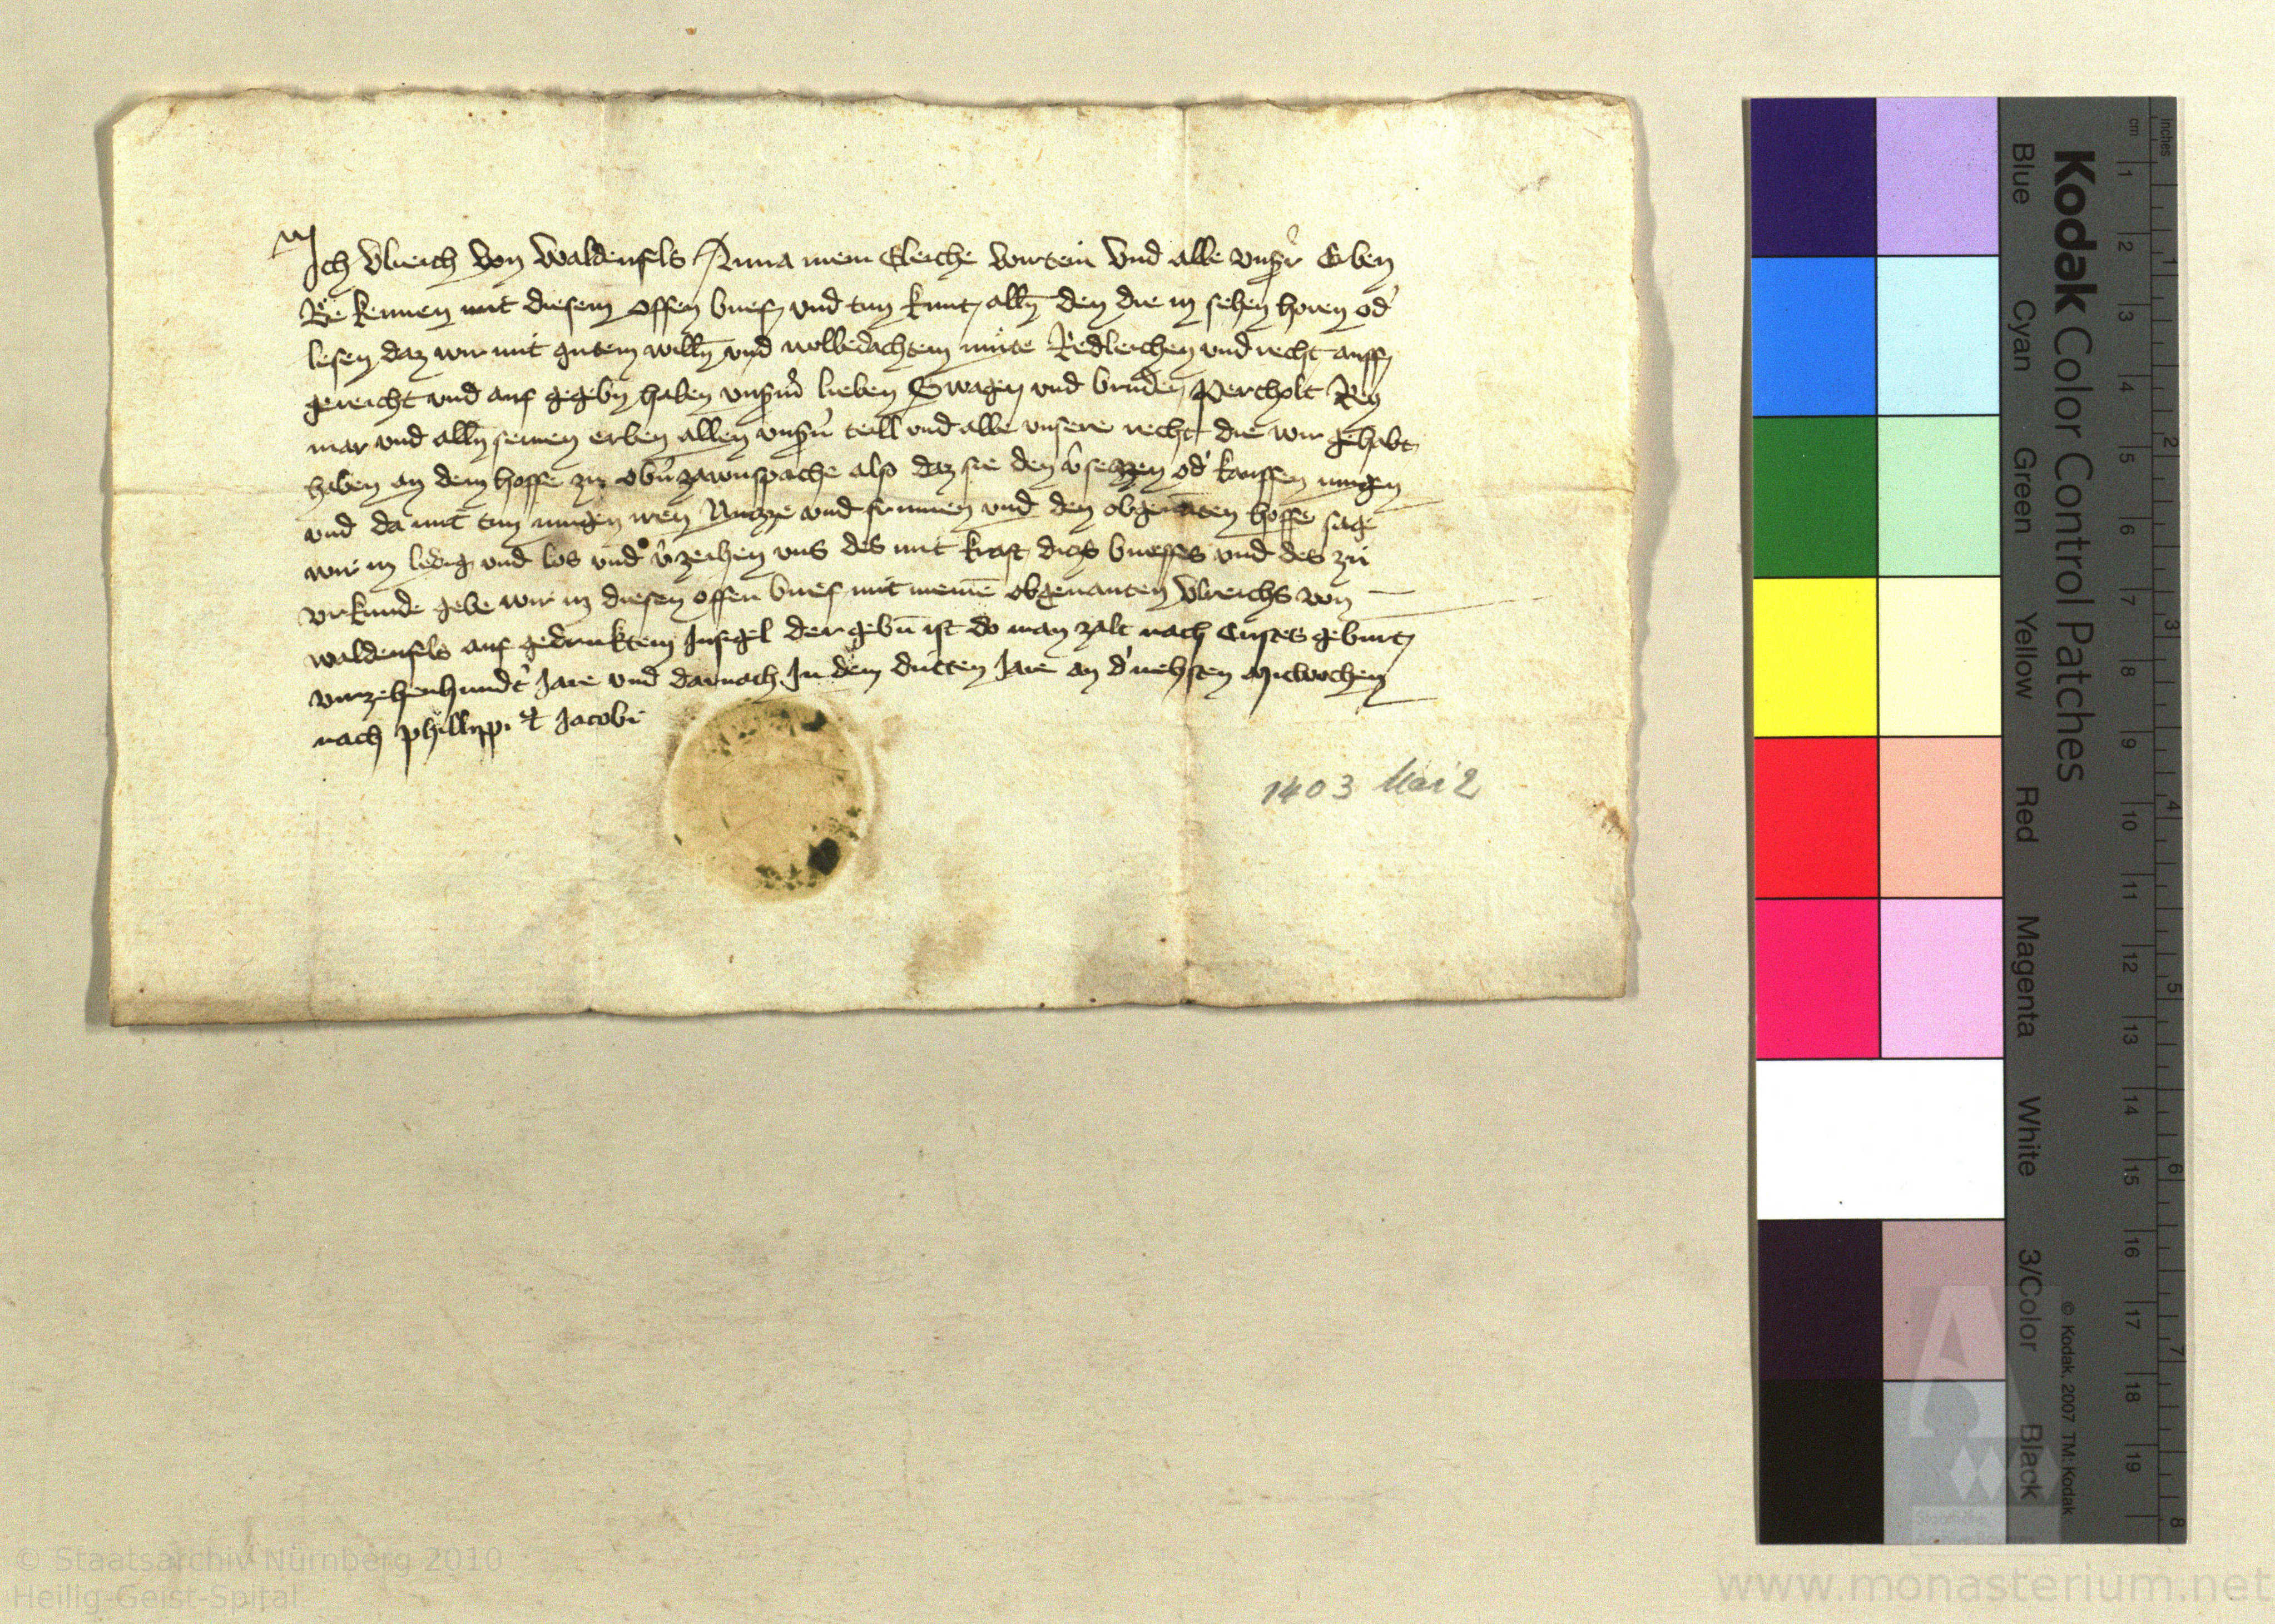 Ich Vlreich von Waldenfels Anna mein Eleiche wirtein Vnd alle vnsʒ̉r Erben
Be kennen mit diesem offen brief vnd tun kunt alln̄ den die in sehen horen od̕
lesen daz wir mit gutem willn̄ vnd wolbedachtem mute Redleichen vnd recht auff
gereicht vnd auf gegebn haben vnsʒm̉ lieben Swager vnd bruder Percholt Rey
mar vnd alln̄ seinen erben allen vnsʒn̉ teill vnd alle vnsere recht die wir gehabt
haben an dem hoffe zu obn̉ zawnspache also daz sie den v̉seczzen od̕ kauffen mugen
vnd da mit tun mugen iren Nuczze vnd frumen vnd den obgenāten hoffe sage
wir in ledig vnd los vnd v̉zeihen vns des mit kraft dicz brieffes vnd des zu
vrkunde gebe wir in diesen offen brief mit meinē obgenanten Vlreichs von
waldenfels auf gedruktem Insigel der gebn̄ ist do man zalt nach Cristes geburt
virzehenhundt̉ Jare vnd darnach In dem dritten Jare an d̕ nehsten Mitwochen
nach Phillippi et Jacobi
1403 Mai 2
Kodak Color Control Patches
Blue Cyan Green Yellow Red Magenta White 3/Color Black
© Kodak, 2007 TM: Kodak
cm 1 2 3 4 5 6 7 8 9 10 11 12 13 14 15 16 17 18 19
inches 1 2 3 4 5 6 7 8
© Staatsarchiv Nürnberg 2010
Heilig-Geist-Spital
www.monasterium.net